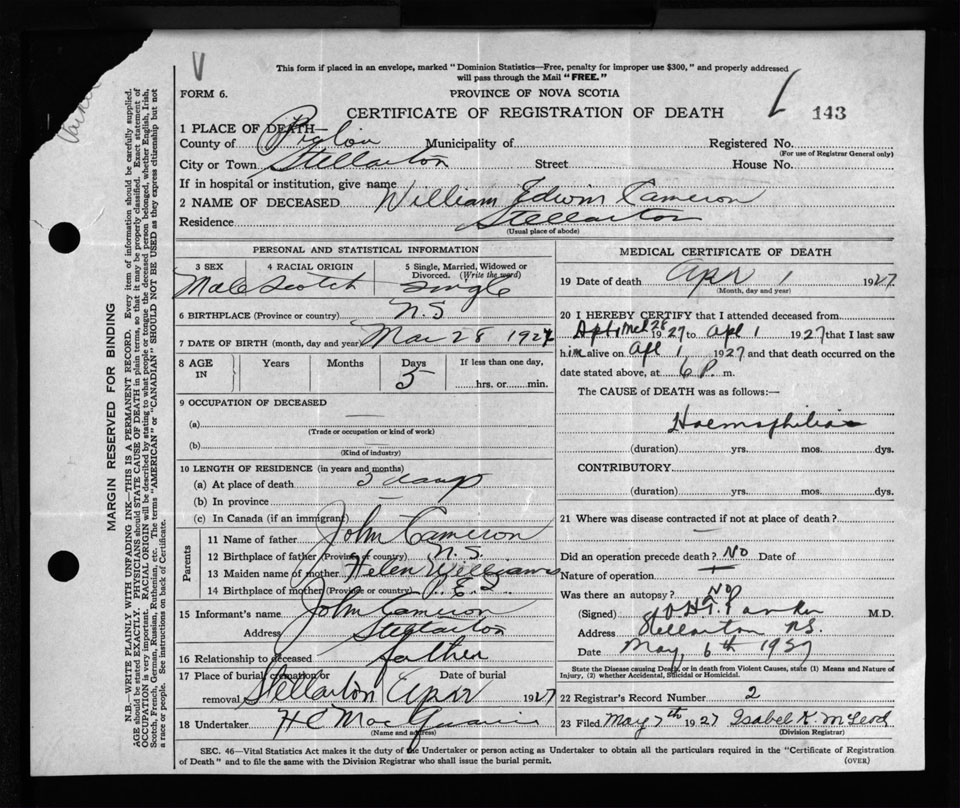 V
This form if placed in an envelope, marked "Dominion Statistics—Free, penalty for improper use $300," and properly addressed
will pass through the Mail "FREE."
FORM 6.
PROVINCE OF NOVA SCOTIA
CERTIFICATE OF REGISTRATION OF DEATH
143
1 PLACE OF DEATH—
County of Pictou Municipality of Registered No.
(For use of Registrar General only)
City or Town Stellarton Street House No.
If in hospital or institution, give name
2 NAME OF DECEASED William Edwin Cameron
Residence Stellarton
(Usual place of abode)
PERSONAL AND STATISTICAL INFORMATION
3 SEX 4 RACIAL ORIGIN 5 Single, Married, Widowed or Divorced. (Write the word)
Male Scotch Single
6 BIRTHPLACE (Province or country) N.S
7 DATE OF BIRTH (month, day and year) Mar 28 1927
8 AGE IN Years Months Days If less than one day,
5 hrs. or min.
9 OCCUPATION OF DECEASED
(a)
(Trade or occupation or kind of work)
(b)
(Kind of industry)
10 LENGTH OF RESIDENCE (in years and months)
(a) At place of death 5 days
(b) In province
(c) In Canada (if an immigrant)
Parents
11 Name of father John Cameron
12 Birthplace of father (Province or country) N.S.
13 Maiden name of mother Helen Williams
14 Birthplace of mother (Province or country) P.E.I.
15 Informant's name John Cameron
Address Stellarton
16 Relationship to deceased father
17 Place of burial, cremation or removal Date of burial
Stellarton Apr 1927
18 Undertaker H C Mac
(Name and address)
MEDICAL CERTIFICATE OF DEATH
19 Date of death Apr 1 1927
(Month, day and year)
20 I HEREBY CERTIFY that I attended deceased from
Mch 28 1927 to Apl 1 1927 that I last saw
him alive on Apl 1 1927 and that death occurred on the
date stated above, at 6 P. m.
The CAUSE of DEATH was as follows:—
Haemophilia
(duration) yrs. mos. dys.
CONTRIBUTORY
(duration) yrs. mos. dys.
21 Where was disease contracted if not at place of death?
Did an operation precede death? No Date of
Nature of operation
Was there an autopsy? No
(Signed) M.D.
Address Stellarton N.S.
Date May 6th 1927
State the Disease causing Death, or in death from Violent Causes, state (1) Means and Nature of
Injury, (2) whether Accidental, Suicidal or Homicidal.
22 Registrar's Record Number 2
23 Filed May 7th 1927 Isabel K. McLeod
(Division Registrar)
SEC. 46—Vital Statistics Act makes it the duty of the Undertaker or person acting as Undertaker to obtain all the particulars required in the "Certificate of Registration
of Death" and to file the same with the Division Registrar who shall issue the burial permit.
(OVER)
MARGIN RESERVED FOR BINDING
N.B.—WRITE PLAINLY WITH UNFADING INK—THIS IS A PERMANENT RECORD. Every item of information should be carefully supplied.
AGE should be stated EXACTLY. PHYSICIANS should STATE CAUSE OF DEATH in plain terms, so that it may be properly classified. Exact statement of
OCCUPATION is very important. RACIAL ORIGIN will be described by stating to what people or tongue the deceased person belonged, whether English, Irish,
Scotch, French, German, Russian, Ruthenian, etc. The terms "AMERICAN" or "CANADIAN" SHOULD NOT BE USED as they express citizenship but not
a race or people. See instructions on back of Certificate.